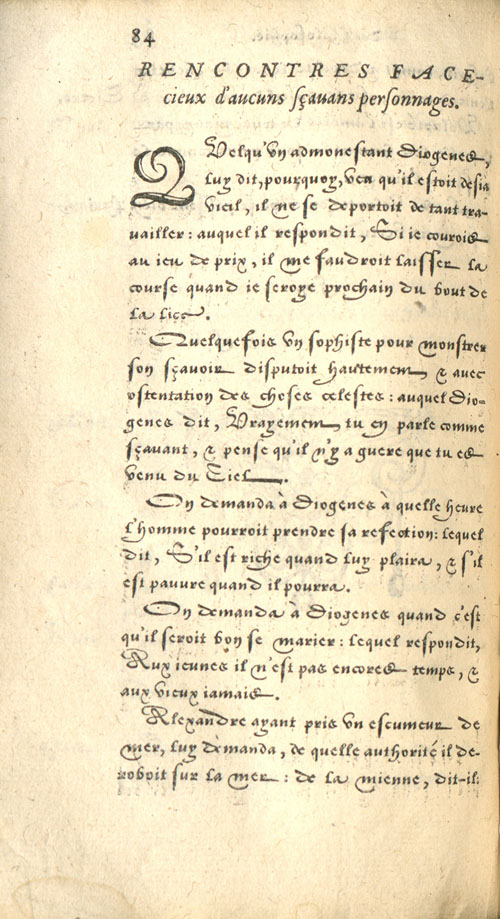 84
RENCONTRES FACE-
cieux d'aucuns sçauans personnages.
QVelqu'vn admonestant Diogenes,
luy dit, pourquoy, veu qu'il estoit desia
vieil, il ne se deportoit de tant tra-
uailler: auquel il respondit, Si ie courois
au ieu de prix, il me faudroit laisser la
course quand ie seroye prochain du bout de
la lice.
Quelquefois vn sophiste pour monstrer
son sçauoir disputoit hautement & auec
ostentation des choses celestes: auquel Dio-
genes dit, Vrayement tu en parle comme
sçauant, & pense qu'il n'y a guere que tu es
venu du Ciel.
On demanda à Diogenes à quelle heure
l'homme pourroit prendre sa refection: lequel
dit, S'il est riche quand luy plaira, & s'il
est pauure quand il pourra.
On demanda à Diogenes quand c'est
qu'il seroit bon se marier: lequel respondit,
Aux ieunes il n'est pas encores temps, &
aux vieux iamais.
Alexandre ayant pris vn escumeur de
mer, luy demanda, de quelle authorité il de-
roboit sur la mer: de la mienne, dit-il: